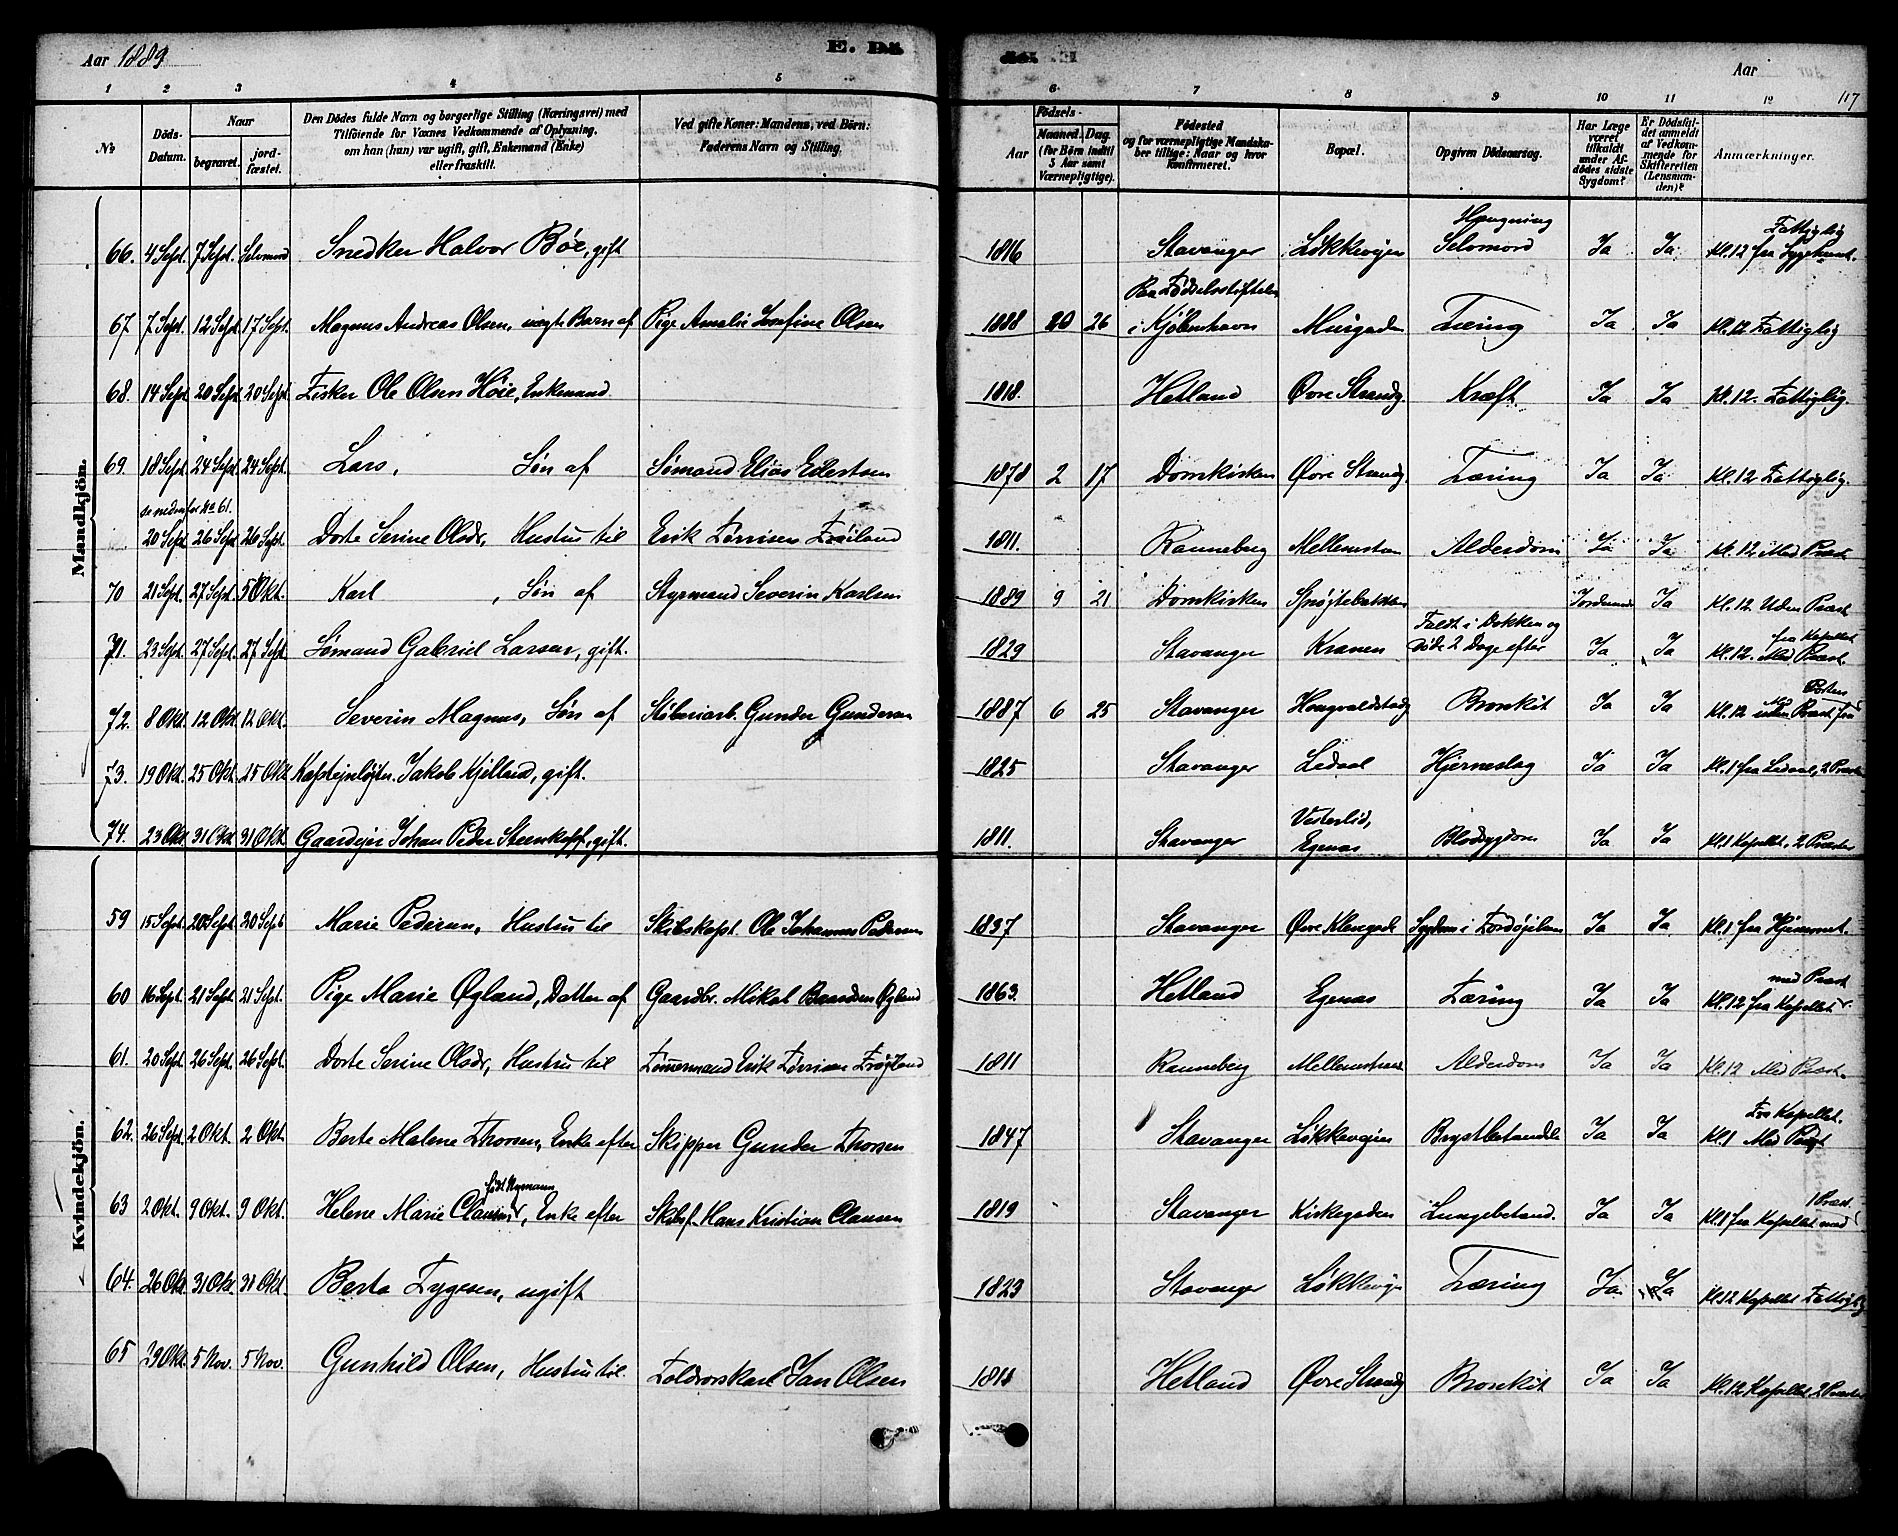 Aar 1889
E. Dö
117
Aar
1 2 3 4 5 6 7 8 9 10 11 12
No
Döds-Datum.
Naar
begravet.
jord-fæstet.
Den Dödes fulde Navn og borgerlige Stilling (Næringsvei) med
Tilföiende for Voxnes Vedkommende af Oplysning,
om han (hun) var ugift, gift, Enkemand (Enke)
eller fraskilt.
Ved gifte Koner: Mandens, ved Börn:
Faderens Navn og Stilling.
Födsels-
Aar
Maaned. Dag.
(for Börn indtil
5 Aar samt
Værnepligtige).
Födested
og for værnepligtige Mandska-
ber tillige: Naar og hvor
konfirmeret.
Bopæl.
Opgiven Dödsaarsag.
Har Læge
været
tilkaldt
under Af-
dödes sidste
Sygdom?
Er Dödsfal-
det anmeldt
af Vedkom-
mende for
Skifteretten
(Lensman-
den)?
Anmærkninger.
Mandkjön.
66. 4 Sept. 7 Sept. Selvmord Snedker Halvor Böe, gift 1816 Stavanger Løkkevejen Hængning Selvmord Ja Ja Fattiglig Kl. 12 fra
67 7 Sept. 12 Sept. 17 Sept. Magnus Andreas Olsen, uægte Barn af Pige Amalie Josefine Olsen 1888 26 Paa Fødselsstiftelsen i Kjøbenhavn Murgaden Tæring Ja Ja Kl. 12 Fattiglig
68. 14 Sept 20 Sept 20 Sept. Fisker Ole Olsen Høie, Enkemand 1818. Hetland Øvre Strandg. Kræft Ja Ja Kl. 12. Fattiglig.
69. 18 Sept. 24 Sept. 24 Sept. Lars, Søn af Sømand Elias Edertsen 1878 2 17 Domkirken Øvre Strandg. Tæring Ja Ja Kl. 12 Fattiglig.
se nedenfor No 61.
20 Sept 26 Sept 26 Sept. Dorte Serine Olsdr, Hustru til Erik Tørrisen Frøiland 1811. Ranneberg Mellemstraen Alderdom Ja Ja Kl. 12 Med Præst
70 21 Sept. 27 Sept. 5 Okt. Karl, Søn af Styrmand Severin Karlsen 1889 9 21 Domkirken Spøgtebakken Jordemod Ja Kl. 12 Uden Præst
71. 23 Sept. 27 Sept. 27 Sept Sømand Gabriel Larsen, gift. 1829 Stavanger Kranen Faldt i Dokken og døde 2 Dage efter Ja Ja fra Kapellet Kl. 12. Med Præst.
72. 8 Okt. 12 Okt. 12 Okt. Severin Magnus, Søn af Støberiarb. Gunder Gundersen 1887 6 25 Stavanger Hongvaldstadg Bronkit Ja Ja Kl. 12 Med Præst fra Porten
73. 19 Okt. 25 Okt. 25 Okt Kaptejnløjtn. Jakob Kjelland, gift. 1825 Stavanger Ledaal Hjerneslag Ja Ja Kl. 1 fra Ledaal, 2 Præster
74. 23 Okt 31 Okt 31 Okt. Gaardejer Johan Peder Steenkopf, gift. 1811. Stavanger Vesterlid, Egenæs Blodsygdom Ja Ja Kl. 1 Kapellet, 2 Præster
Kvindekjön.
59 15 Sept. 20 Sept. 20 Sept Marie Pedersen, Hustru til Skibskapt. Ole Johannes Pedersen 1837 Stavanger Øvre Klevgade Sygdom i Fordøjelsen Ja Ja Kl. 1 fra Hjemmet.
60 16 Sept. 21 Sept. 21 Sept. Pige Marie Øgland, Datter af Gaardbr. Mikal Baardsen Øgland 1863. Hetland Egenæs Tæring Ja Ja med Præst Kl. 12 fra Kapellet
61. 20 Sept. 26 Sept. 26 Sept. Dorte Serine Olsdr, Hustru til Tømmermand Erik Tørrisen Frøjland 1811 Ranneberg Mellemstraen Alderdom Ja Ja Kl. 12 Med Præst.
62. 26 Sept. 2 Okt. 2 Okt Berte Malene Thorsen, Enke efter Skipper Gunder Thorsen 1847 Stavanger Løkkevejen Brystbetændelse Ja Ja Fra Kapellet. Kl. 1 Med Præst
63 2 Okt. 9 Okt. 9 Okt. Helene Marie Clausen, født Nymann, Enke efter Skibsf. Hans Kristian Clausen 1819 Stavanger Kirkegaden Lungebetænd. Ja Ja Kl. 1 fra Kapellet med 1 Præst
64. 26 Okt 31 Okt. 31 Okt. Berta Tygesen, ugift 1823 Stavanger Løkkevejen Tæring Ja Ja Kl. 12 Kapellet Fattiglig
65 29 Okt. 5 Nov. 5 Nov. Gunhild Olsen, Hustru til Toldrorskarl Jan Olsen 1811 Hetland Øvre Strandg Bronkit Ja Ja Kl. 12 Kapellet, 2 Præster